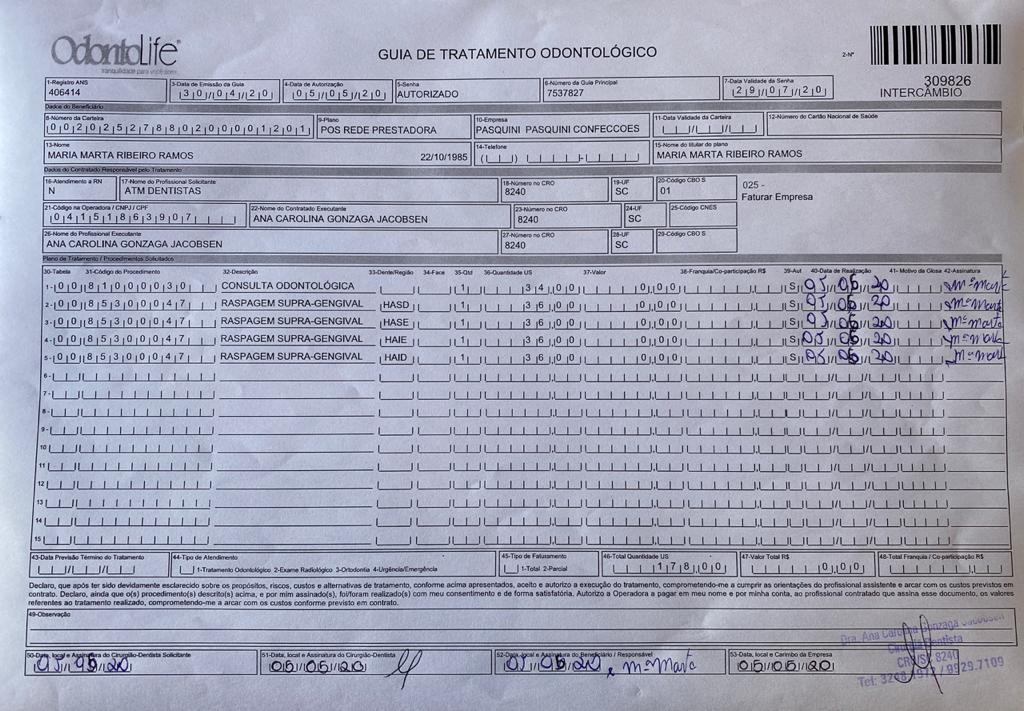 OdontoLife
tranquilidade para você sorrir
GUIA DE TRATAMENTO ODONTOLÓGICO
2-Nº
309826
INTERCÂMBIO
1-Registro ANS 3-Data de Emissão da Guia 4-Data de Autorização 5-Senha 6-Número da Guia Principal 7-Data Validade da Senha
406414 30/04/20 05/05/20 AUTORIZADO 7537827 29/07/20
Dados do Beneficiário
8-Número da Carteira 9-Plano 10-Empresa 11-Data Validade da Carteira 12-Número do Cartão Nacional de Saúde
00202527880200001201 POS REDE PRESTADORA PASQUINI PASQUINI CONFECCOES
13-Nome 14-Telefone 15-Nome do titular do plano
MARIA MARTA RIBEIRO RAMOS 22/10/1985 MARIA MARTA RIBEIRO RAMOS
Dados do Contratado Responsável pelo Tratamento
16-Atendimento a RN 17-Nome do Profissional Solicitante 18-Número no CRO 19-UF 20-Código CBO S
N ATM DENTISTAS 8240 SC 01
025 -
Faturar Empresa
21-Código na Operadora / CNPJ / CPF 22-Nome do Contratado Executante 23-Número no CRO 24-UF 25-Código CNES
04151863907 ANA CAROLINA GONZAGA JACOBSEN 8240 SC
26-Nome do Profissional Executante 27-Número no CRO 28-UF 29-Código CBO S
ANA CAROLINA GONZAGA JACOBSEN 8240 SC
Plano de Tratamento / Procedimentos Solicitados
30-Tabela 31-Código do Procedimento 32-Descrição 33-Dente/Região 34-Face 35-Qtd 36-Quantidade US 37-Valor 38-Franquia/Co-participação R$ 39-Aut 40-Data de Realização 41- Motivo da Glosa 42-Assinatura
1- 00 81000030 CONSULTA ODONTOLÓGICA 1 34,00 0,00 S 05/05/20 Mª Marta
2- 00 85300047 RASPAGEM SUPRA-GENGIVAL HASD 1 36,00 0,00 S 05/05/20 Mª Marta
3- 00 85300047 RASPAGEM SUPRA-GENGIVAL HASE 1 36,00 0,00 S 05/05/20 Mª Marta
4- 00 85300047 RASPAGEM SUPRA-GENGIVAL HAIE 1 36,00 0,00 S 05/05/20 Mª Marta
5- 00 85300047 RASPAGEM SUPRA-GENGIVAL HAID 1 36,00 0,00 S 05/05/20 Mª Marta
6-
7-
8-
9-
10
11
12
13
14
15
43-Data Previsão Término do Tratamento 44-Tipo de Atendimento 45-Tipo de Faturamento 46-Total Quantidade US 47-Valor Total R$ 48-Total Franquia / Co-participação R$
1-Tratamento Odontológico 2-Exame Radiológico 3-Ortodontia 4-Urgência/Emergência 1-Total 2-Parcial 178,00 0,00
Declaro, que após ter sido devidamente esclarecido sobre os propósitos, riscos, custos e alternativas de tratamento, conforme acima apresentados, aceito e autorizo a execução do tratamento, comprometendo-me a cumprir as orientações do profissional assistente e arcar com os custos previstos em
contrato. Declaro, ainda que o(s) procedimento(s) descrito(s) acima, e por mim assinado(s), foi/foram realizado(s) com meu consentimento e de forma satisfatória. Autorizo a Operadora a pagar em meu nome e por minha conta, ao profissional contratado que assina esse documento, os valores
referentes ao tratamento realizado, comprometendo-me a arcar com os custos conforme previsto em contrato.
49-Observação
Dra. Ana Carolina Gonzaga Jacobsen
Cirurgiã Dentista
CRO/SC 8240
50-Data, local e Assinatura do Cirurgião-Dentista Solicitante 51-Data, local e Assinatura do Cirurgião-Dentista 52-Data, local e Assinatura do Beneficiário / Responsável 53-Data, local e Carimbo da Empresa
05/05/20 05/05/20 05/05/20 Mª Marta 05/05/20